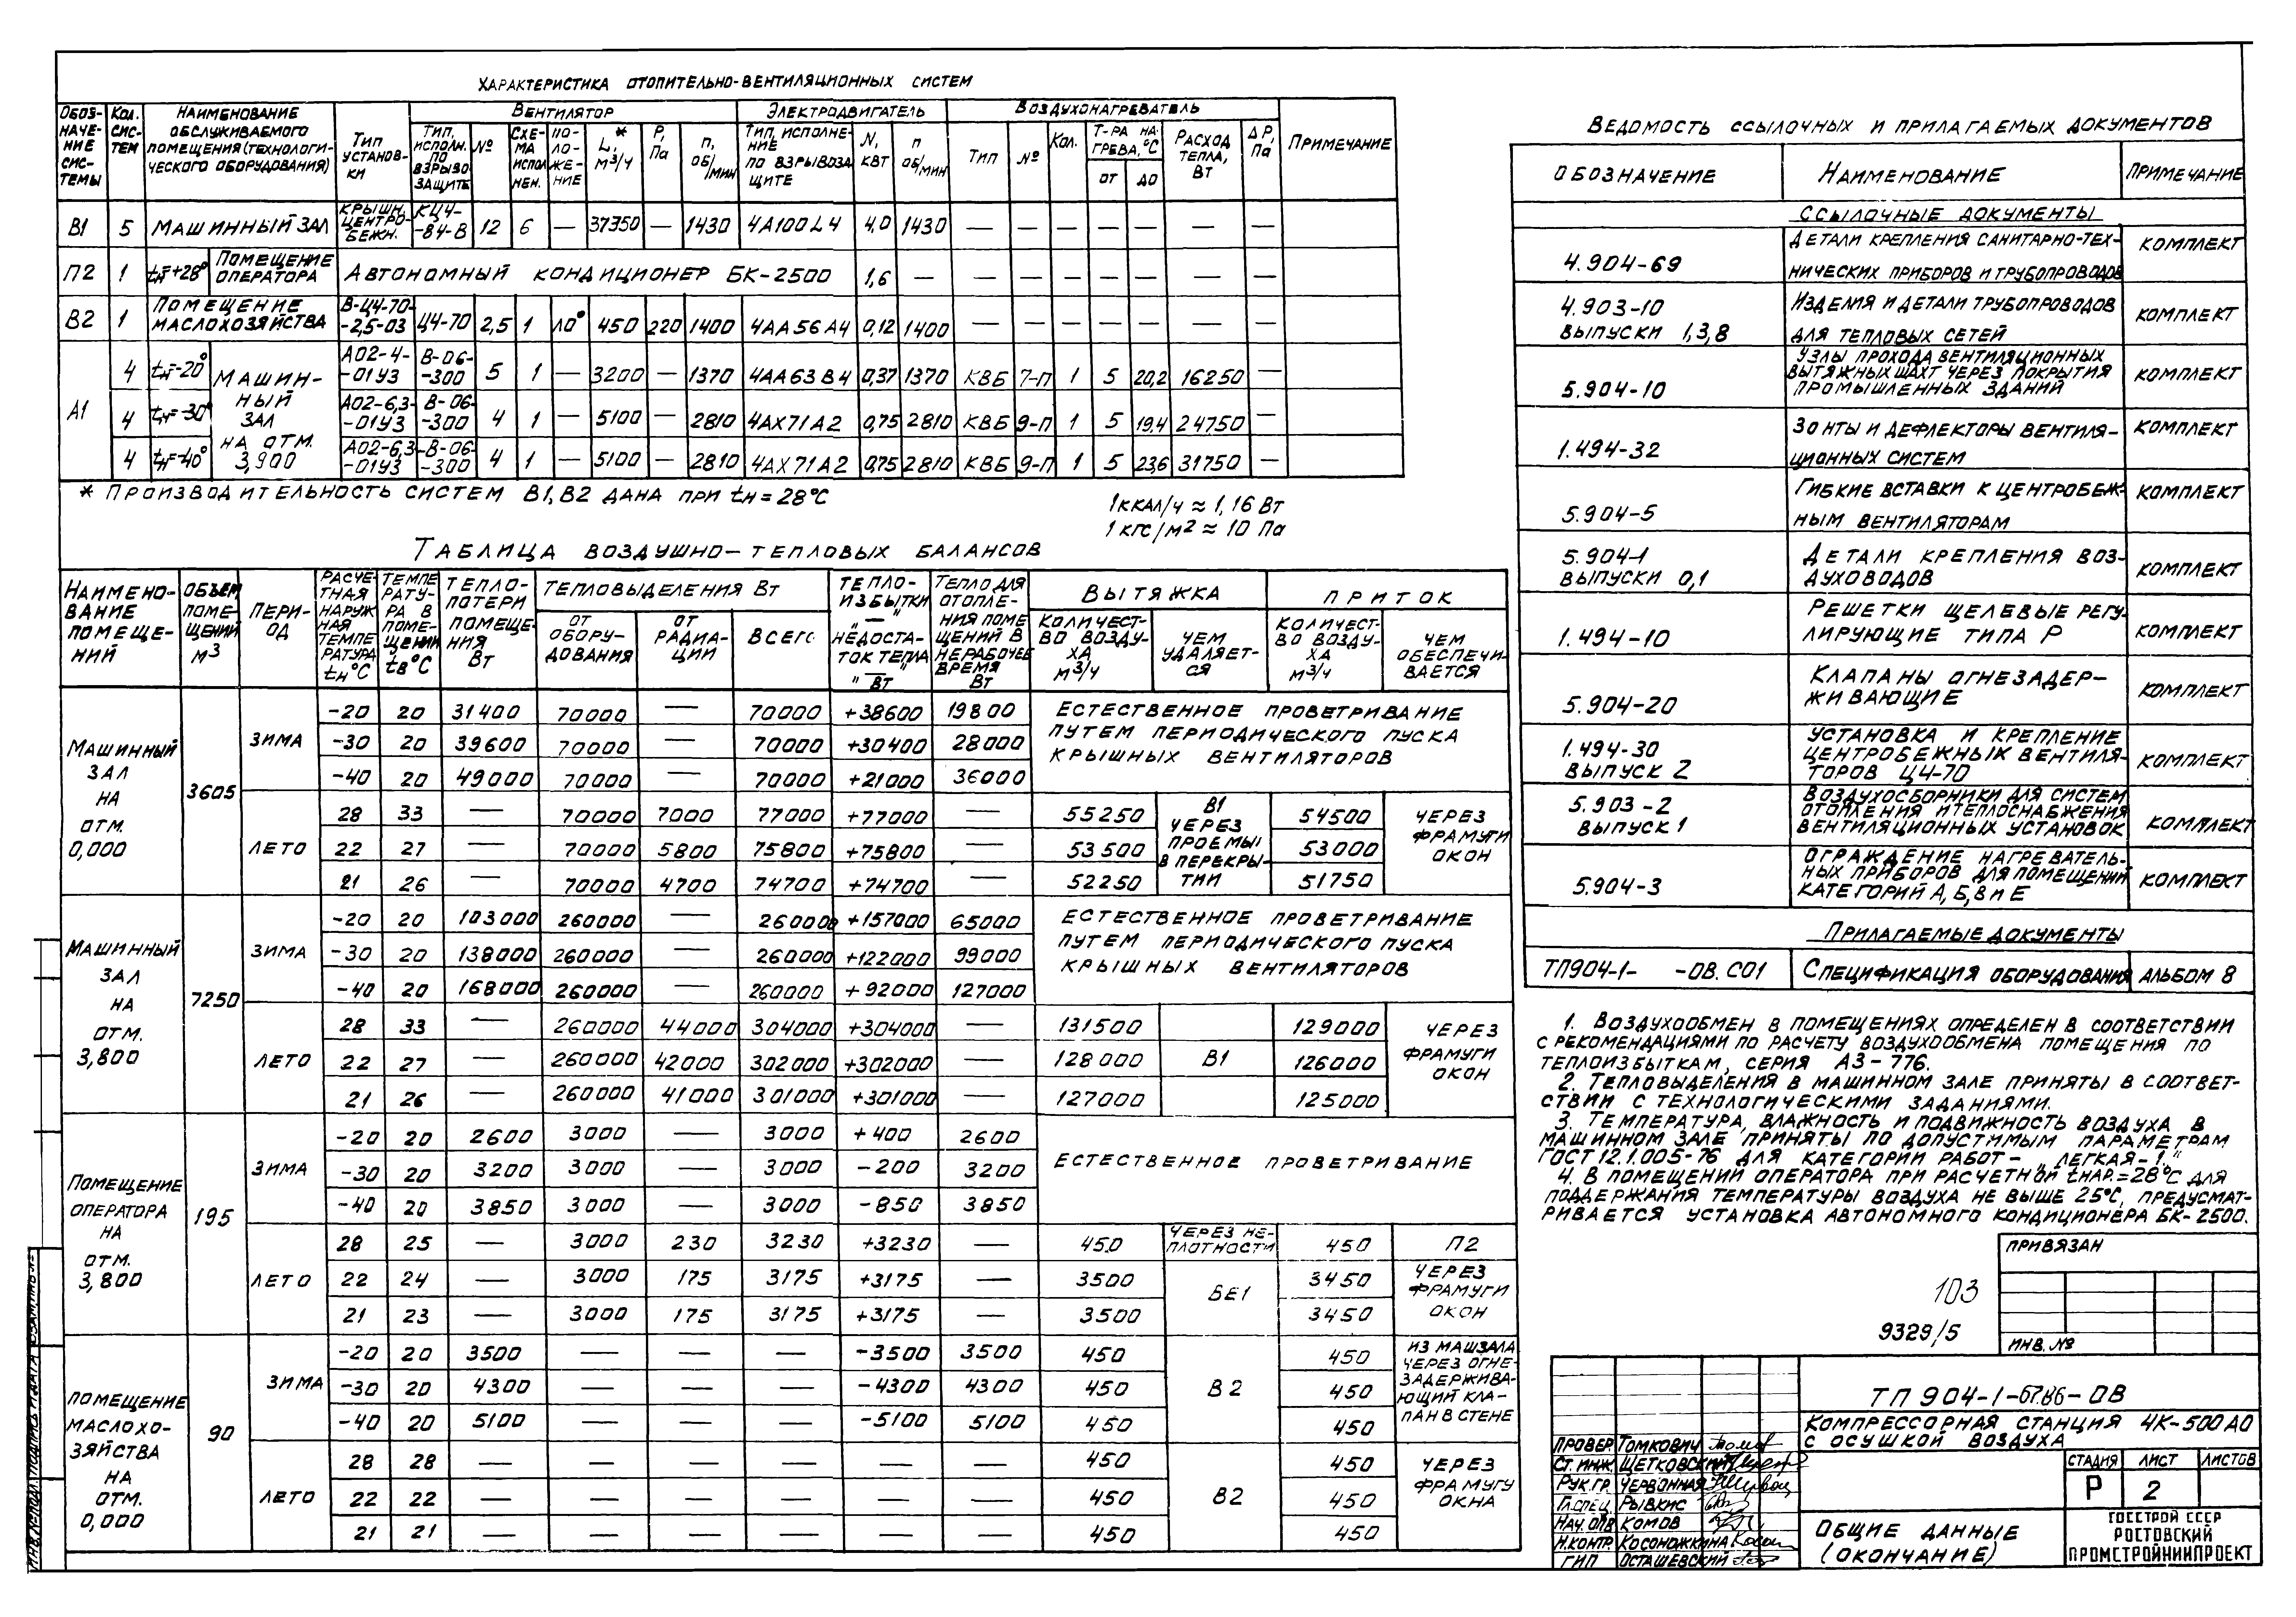 Характеристика отопительно-вентиляционных систем
Обозначение системы | Кол. систем | Наименование обслуживаемого помещения (технологического оборудования) | Тип установки | Вентилятор | Электродвигатель | Воздухонагреватель | Примечание
Тип, исполн. по взрывозащите | № | Схема исполнен. | Положение | L,* м³/ч | P, Па | n, об/мин | Тип, исполнение по взрывозащите | N, кВт | n об/мин | Тип | № | Кол. | Т-ра нагрева, °С от до | Расход тепла, Вт | ΔP, Па
В1 | 5 | Машинный зал | Крышн. центробежн. | КЦ4-84-В | 12 | 6 | — | 37350 | — | 1430 | 4А100L4 | 4,0 | 1430 | — | — | — | — | — | — | —
П2 | 1 | tн=+28° Помещение оператора | Автономный кондиционер БК-2500 | 1,6 | — | — | — | — | — | — | — | —
В2 | 1 | Помещение маслохозяйства | В-Ц4-70-2,5-03 | Ц4-70 | 2,5 | 1 | Л0° | 450 | 220 | 1400 | 4АА56А4 | 0,12 | 1400 | — | — | — | — | — | — | —
А1 | 4 | tн=-20° | Машинный зал на отм. 3,900 | А02-4-01У3 | В-06-300 | 5 | 1 | — | 3200 | — | 1370 | 4АА63В4 | 0,37 | 1370 | КВБ | 7-П | 1 | 5 | 20,2 | 16250 | —
4 | tн=-30° | А02-6,3-01У3 | В-06-300 | 4 | 1 | — | 5100 | — | 2810 | 4АХ71А2 | 0,75 | 2810 | КВБ | 9-П | 1 | 5 | 19,4 | 24750 | —
4 | tн=-40° | А02-6,3-01У3 | В-06-300 | 4 | 1 | — | 5100 | — | 2810 | 4АХ71А2 | 0,75 | 2810 | КВБ | 9-П | 1 | 5 | 23,6 | 31750 | —
* Производительность систем В1, В2 дана при tн = 28°С
1 ккал/ч ≈ 1,16 Вт
1 кгс/м² ≈ 10 Па
Таблица воздушно-тепловых балансов
Наименование помещений | Объем помещений м³ | Период | Расчетная наружная температура tн °С | Температура в помещении tв °С | Теплопотери помещения Вт | Тепловыделения Вт | Теплоизбытки "—" недостаток тепла "—" Вт | Тепло для отопления помещений в нерабочее время Вт | Вытяжка | Приток
от оборудования | от радиации | всего | Количество воздуха м³/ч | Чем удаляется | Количество воздуха м³/ч | Чем обеспечивается
Машинный зал на отм. 0,000 | 3605 | Зима | -20 | 20 | 31400 | 70000 | — | 70000 | +38600 | 19800 | Естественное проветривание
-30 | 20 | 39600 | 70000 | — | 70000 | +30400 | 28000 | путем периодического пуска
-40 | 20 | 49000 | 70000 | — | 70000 | +21000 | 36000 | крышных вентиляторов
Лето | 28 | 33 | — | 70000 | 7000 | 77000 | +77000 | — | 55250 | В1 через проемы в перекрытии | 54500 | Через фрамуги окон
22 | 27 | — | 70000 | 5800 | 75800 | +75800 | — | 53500 | 53000
21 | 26 | — | 70000 | 4700 | 74700 | +74700 | — | 52250 | 51750
Машинный зал на отм. 3,800 | 7250 | Зима | -20 | 20 | 103000 | 260000 | — | 260000 | +157000 | 65000 | Естественное проветривание
-30 | 20 | 138000 | 260000 | — | 260000 | +122000 | 99000 | путем периодического пуска
-40 | 20 | 168000 | 260000 | — | 260000 | +92000 | 127000 | крышных вентиляторов
Лето | 28 | 33 | — | 260000 | 44000 | 304000 | +304000 | — | 131500 | В1 | 129000 | Через фрамуги окон
22 | 27 | — | 260000 | 42000 | 302000 | +302000 | — | 128000 | 126000
21 | 26 | — | 260000 | 41000 | 301000 | +301000 | — | 127000 | 125000
Помещение оператора на отм. 3,800 | 195 | Зима | -20 | 20 | 2600 | 3000 | — | 3000 | +400 | 2600 | Естественное проветривание
-30 | 20 | 3200 | 3000 | — | 3000 | -200 | 3200
-40 | 20 | 3850 | 3000 | — | 3000 | -850 | 3850
Лето | 28 | 25 | — | 3000 | 230 | 3230 | +3230 | — | 450 | Через неплотности | 450 | П2
22 | 24 | — | 3000 | 175 | 3175 | +3175 | — | 3500 | ВЕ1 | 3450 | Через фрамуги окон
21 | 23 | — | 3000 | 175 | 3175 | +3175 | — | 3500 | 3450
Помещение маслохозяйства на отм. 0,000 | 90 | Зима | -20 | 20 | 3500 | — | — | — | -3500 | 3500 | 450 | В2 | 450 | Из машзала через огнезадерживающий клапан в стене
-30 | 20 | 4300 | — | — | — | -4300 | 4300 | 450 | 450
-40 | 20 | 5100 | — | — | — | -5100 | 5100 | 450 | 450
Лето | 28 | 28 | — | — | — | — | — | — | 450 | В2 | 450 | Через фрамугу окна
22 | 22 | — | — | — | — | — | — | 450 | 450
21 | 21 | — | — | — | — | — | — | 450 | 450
Ведомость ссылочных и прилагаемых документов
Обозначение | Наименование | Примечание
Ссылочные документы
4.904-69 | Детали крепления санитарно-технических приборов и трубопроводов | комплект
4.903-10 выпуски 1,3,8 | Изделия и детали трубопроводов для тепловых сетей | комплект
5.904-10 | Узлы прохода вентиляционных вытяжных шахт через покрытия промышленных зданий | комплект
1.494-32 | Зонты и дефлекторы вентиляционных систем | комплект
5.904-5 | Гибкие вставки к центробежным вентиляторам | комплект
5.904-1 выпуски 0,1 | Детали крепления воздуховодов | комплект
1.494-10 | Решетки щелевые регулирующие типа Р | комплект
5.904-20 | Клапаны огнезадерживающие | комплект
1.494-30 выпуск 2 | Установка и крепление центробежных вентиляторов Ц4-70 | комплект
5.903-2 выпуск 1 | Воздухосборники для систем отопления и теплоснабжения вентиляционных установок | комплект
5.904-3 | Ограждение нагревательных приборов для помещений категорий А, Б, В и Е | комплект
Прилагаемые документы
ТП904-1- -ОВ.СО1 | Спецификация оборудования | Альбом 8
1. Воздухообмен в помещениях определен в соответствии
с рекомендациями по расчету воздухообмена помещения по
теплоизбыткам, серия АЗ-776.
2. Тепловыделения в машинном зале приняты в соответ-
ствии с технологическими заданиями.
3. Температура, влажность и подвижность воздуха в
машинном зале приняты по допустимым параметрам
ГОСТ 12.1.005-76 для категории работ - "легкая-1."
4. В помещении оператора при расчетной tнар.=28°С для
поддержания температуры воздуха не выше 25°С, предусмат-
ривается установка автономного кондиционера БК-2500.
Привязан
Инв. №
103
9329/5
ТП 904-1-67.86-ОВ
Компрессорная станция 4К-500АО
с осушкой воздуха
Провер Томкович
Ст. инж. Щетковский
Рук. гр. Червонная
Гл. спец. Рывкис
Нач. ОПВ Комов
Н. контр. Косоножкина
ГИП Осташевский
Стадия | Лист | Листов
Р | 2
Общие данные
(окончание)
Госстрой СССР
Ростовский
Промстройниипроект
Инв. № подл. Подпись и дата Взам. инв. №